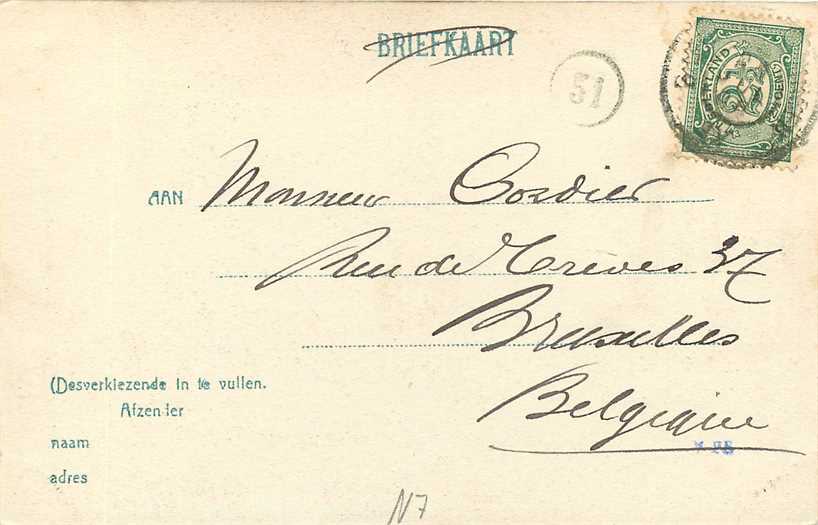 BRIEFKAART
51
NEDERLAND
2½
AAN Monsieur Cordier
Rue de Trèves 37
Bruxelles
Belgique
(Desverkiezende in te vullen.
Afzender
naam
adres
N7